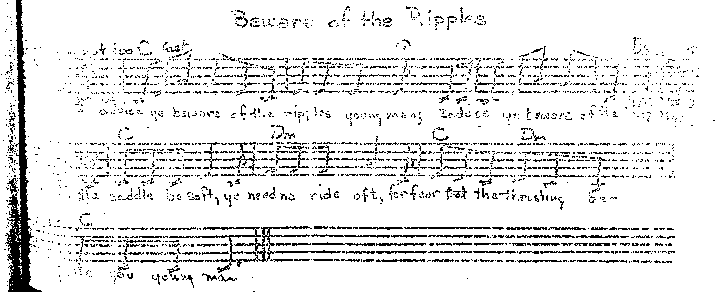 Beware of the Ripples
not too fast
C
advise ye beware of the ripples young man, I advise ye beware of the
C Dm C Dm
the saddle be soft, ye need no ride oft, for fear that the thrusting be-
C
you young man